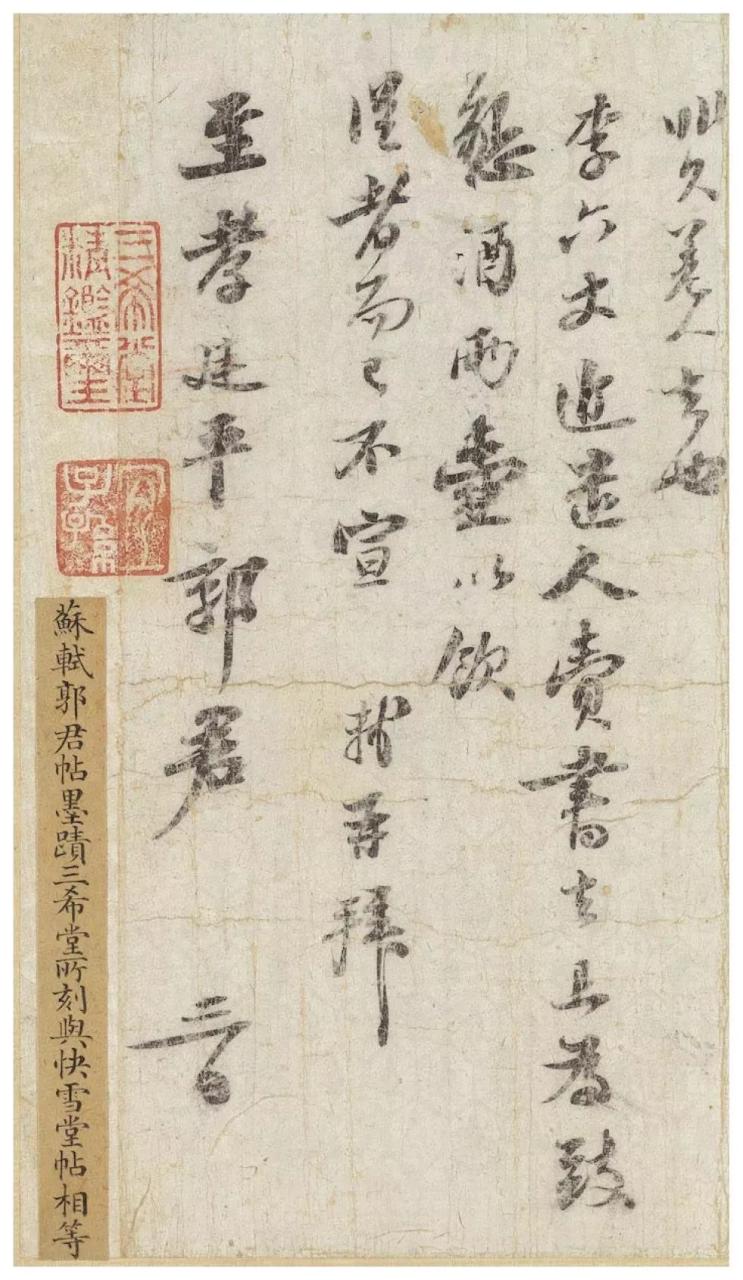 非久差人去也
李六丈近遣人賫書去且為致
懇酒兩壺以飲
從者而已不宣 軾再拜
至孝廷平郭君 三日
三希堂
精鑑璽
宜子孫
蘇軾郭君帖墨蹟三希堂所刻與快雪堂帖相等